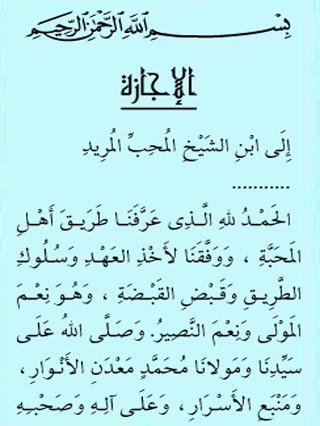 بِسْمِ اللَّهِ الرَّحْمَٰنِ الرَّحِيمِ
الإجازة
إِلَى ابْنِ الشَّيْخِ المُحِبِّ المُرِيدِ
...........
الحَمْدُ للهِ الَّذِى عَرَّفَنَا طَرِيقَ أَهْلِ
المَحَبَّةِ ، وَوَفَّقَنَا لأَخْذِ العَهْدِ وَسُلُوكِ
الطَّرِيقِ وَقَبْضِ القَبْضَةِ ، وَهُوَ نِعْمَ
المَوْلَى وَنِعْمَ النَّصِيرُ. وَصَلَّى اللهُ عَلَى
سَيِّدِنَا وَمَوْلانَا مُحَمَّدٍ مَعْدَنِ الأَنْوَارِ ،
وَمَنْبَعِ الأَسْرَارِ ، وَعَلَى آلِهِ وَصَحْبِهِ